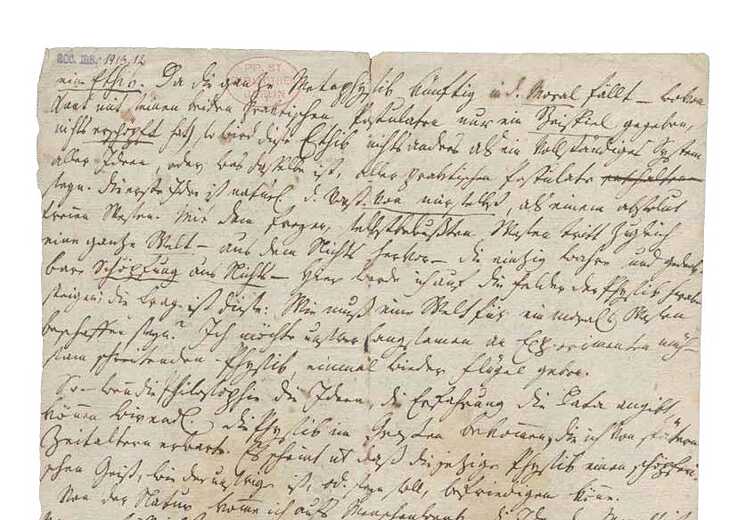 acc. ms. 1913. 12
eine Ethik. Da die ganze Metaphysik künftig in d. Moral fällt – wovon
Kant mit seinen beiden praktischen Postulaten nur ein Beispiel gegeben,
nichts erschöpft hat, so wird diese Ethik nichts anders als ein vollständiges System
aller Ideen, oder was dasselbe ist, aller praktischen Postulate enthalten
seyn. die erste Idee ist natürl. d. Vorst. von mir selbst, als einem absolut
freien Wesen. Mit dem freyen, selbstbewußten Wesen tritt zugleich
eine ganze Welt – aus dem Nichts hervor – die einzig wahre und gedenk-
bare Schöpfung aus Nichts – Hier werde ich auf die Felder der Physik herab-
steigen; die Frage ist diese: Wie muß eine Welt für ein moral. Wesen
beschaffen seyn? Ich möchte unsrer langsamen an Experimenten müh-
sam schreitenden – Physik, einmal wieder Flügel geben.
So – wenn die Philosophie die Ideen, die Erfahrung die Data angibt,
können wir endl. die Physik im Großen bekommen, die ich von spätern
Zeitaltern erwarte. Es scheint nt daß die jezige Physik einen schöpferi-
schen Geist, wie der unsrige ist, od. seyn soll, befriedigen könne.
Von der Natur komme ich aufs Menschenwerk.